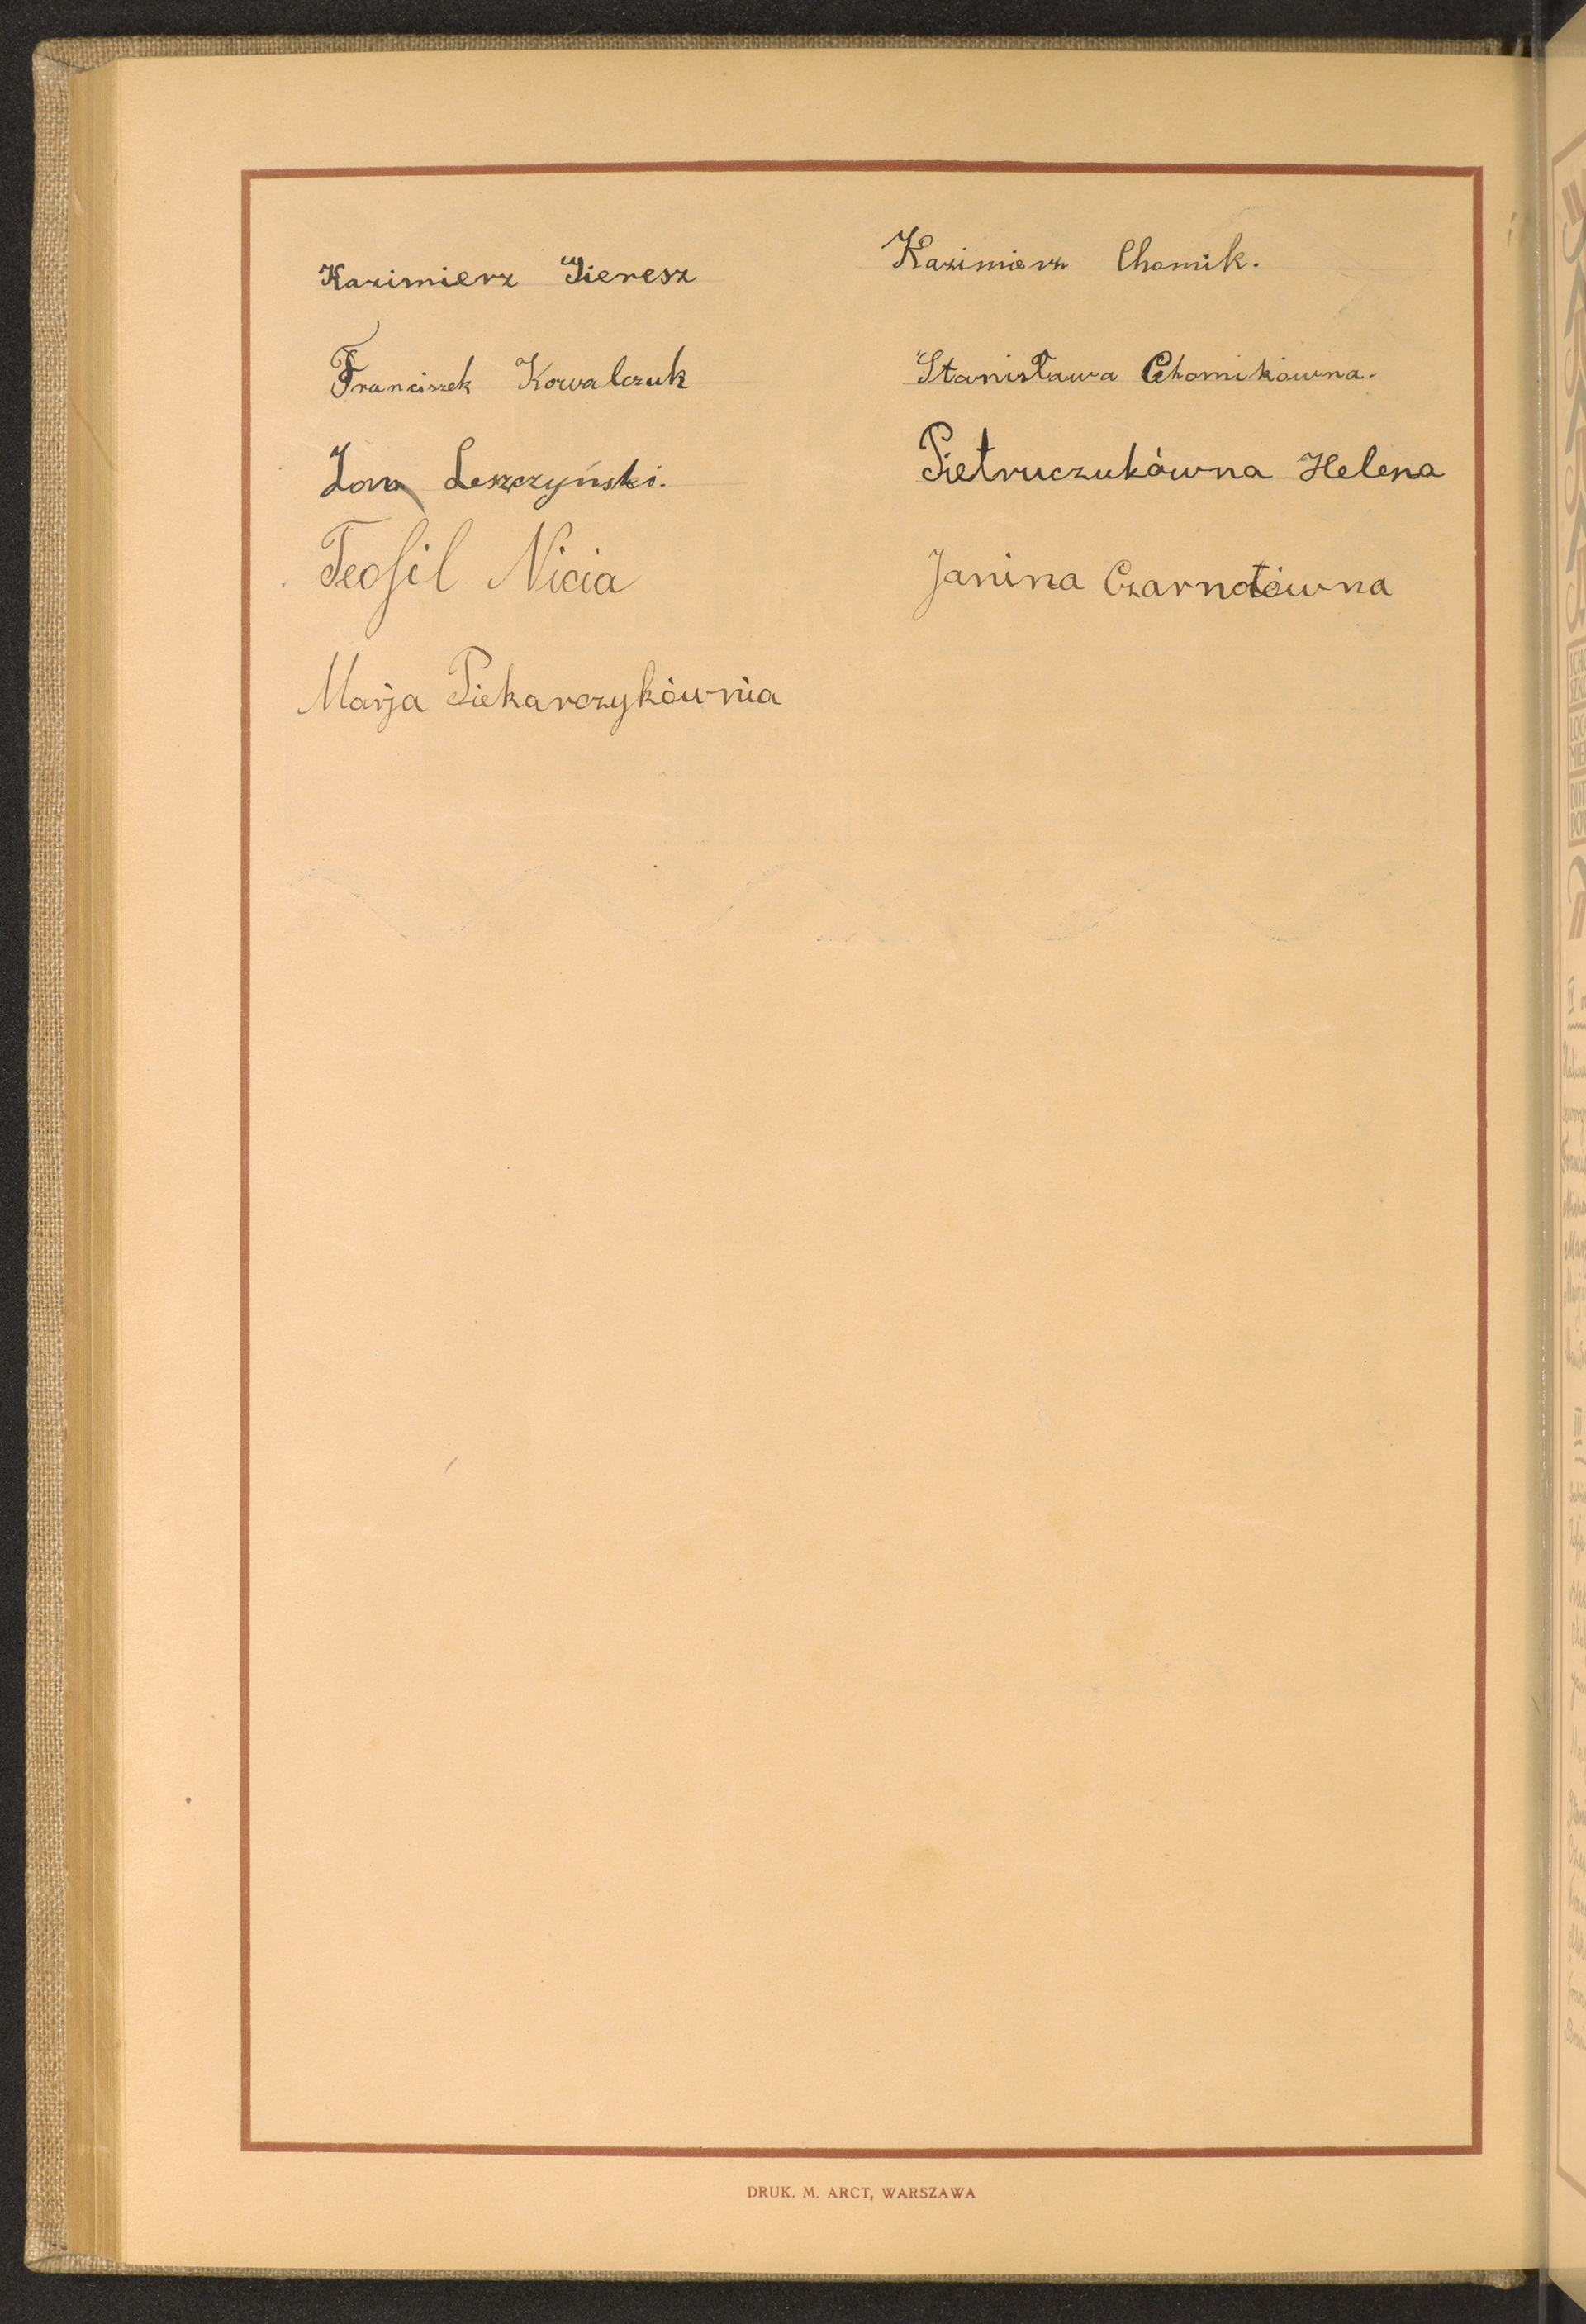 Kazimierz Jieresz
Franciszek Kowalczuk
Jan Leszczyński.
Teofil Nicia
Marja Piekarczykówna
Kazimierz Chomik.
Stanisława Chomikówna.
Pietruczukówna Helena
Janina Czarnotówna
DRUK. M. ARCT, WARSZAWA